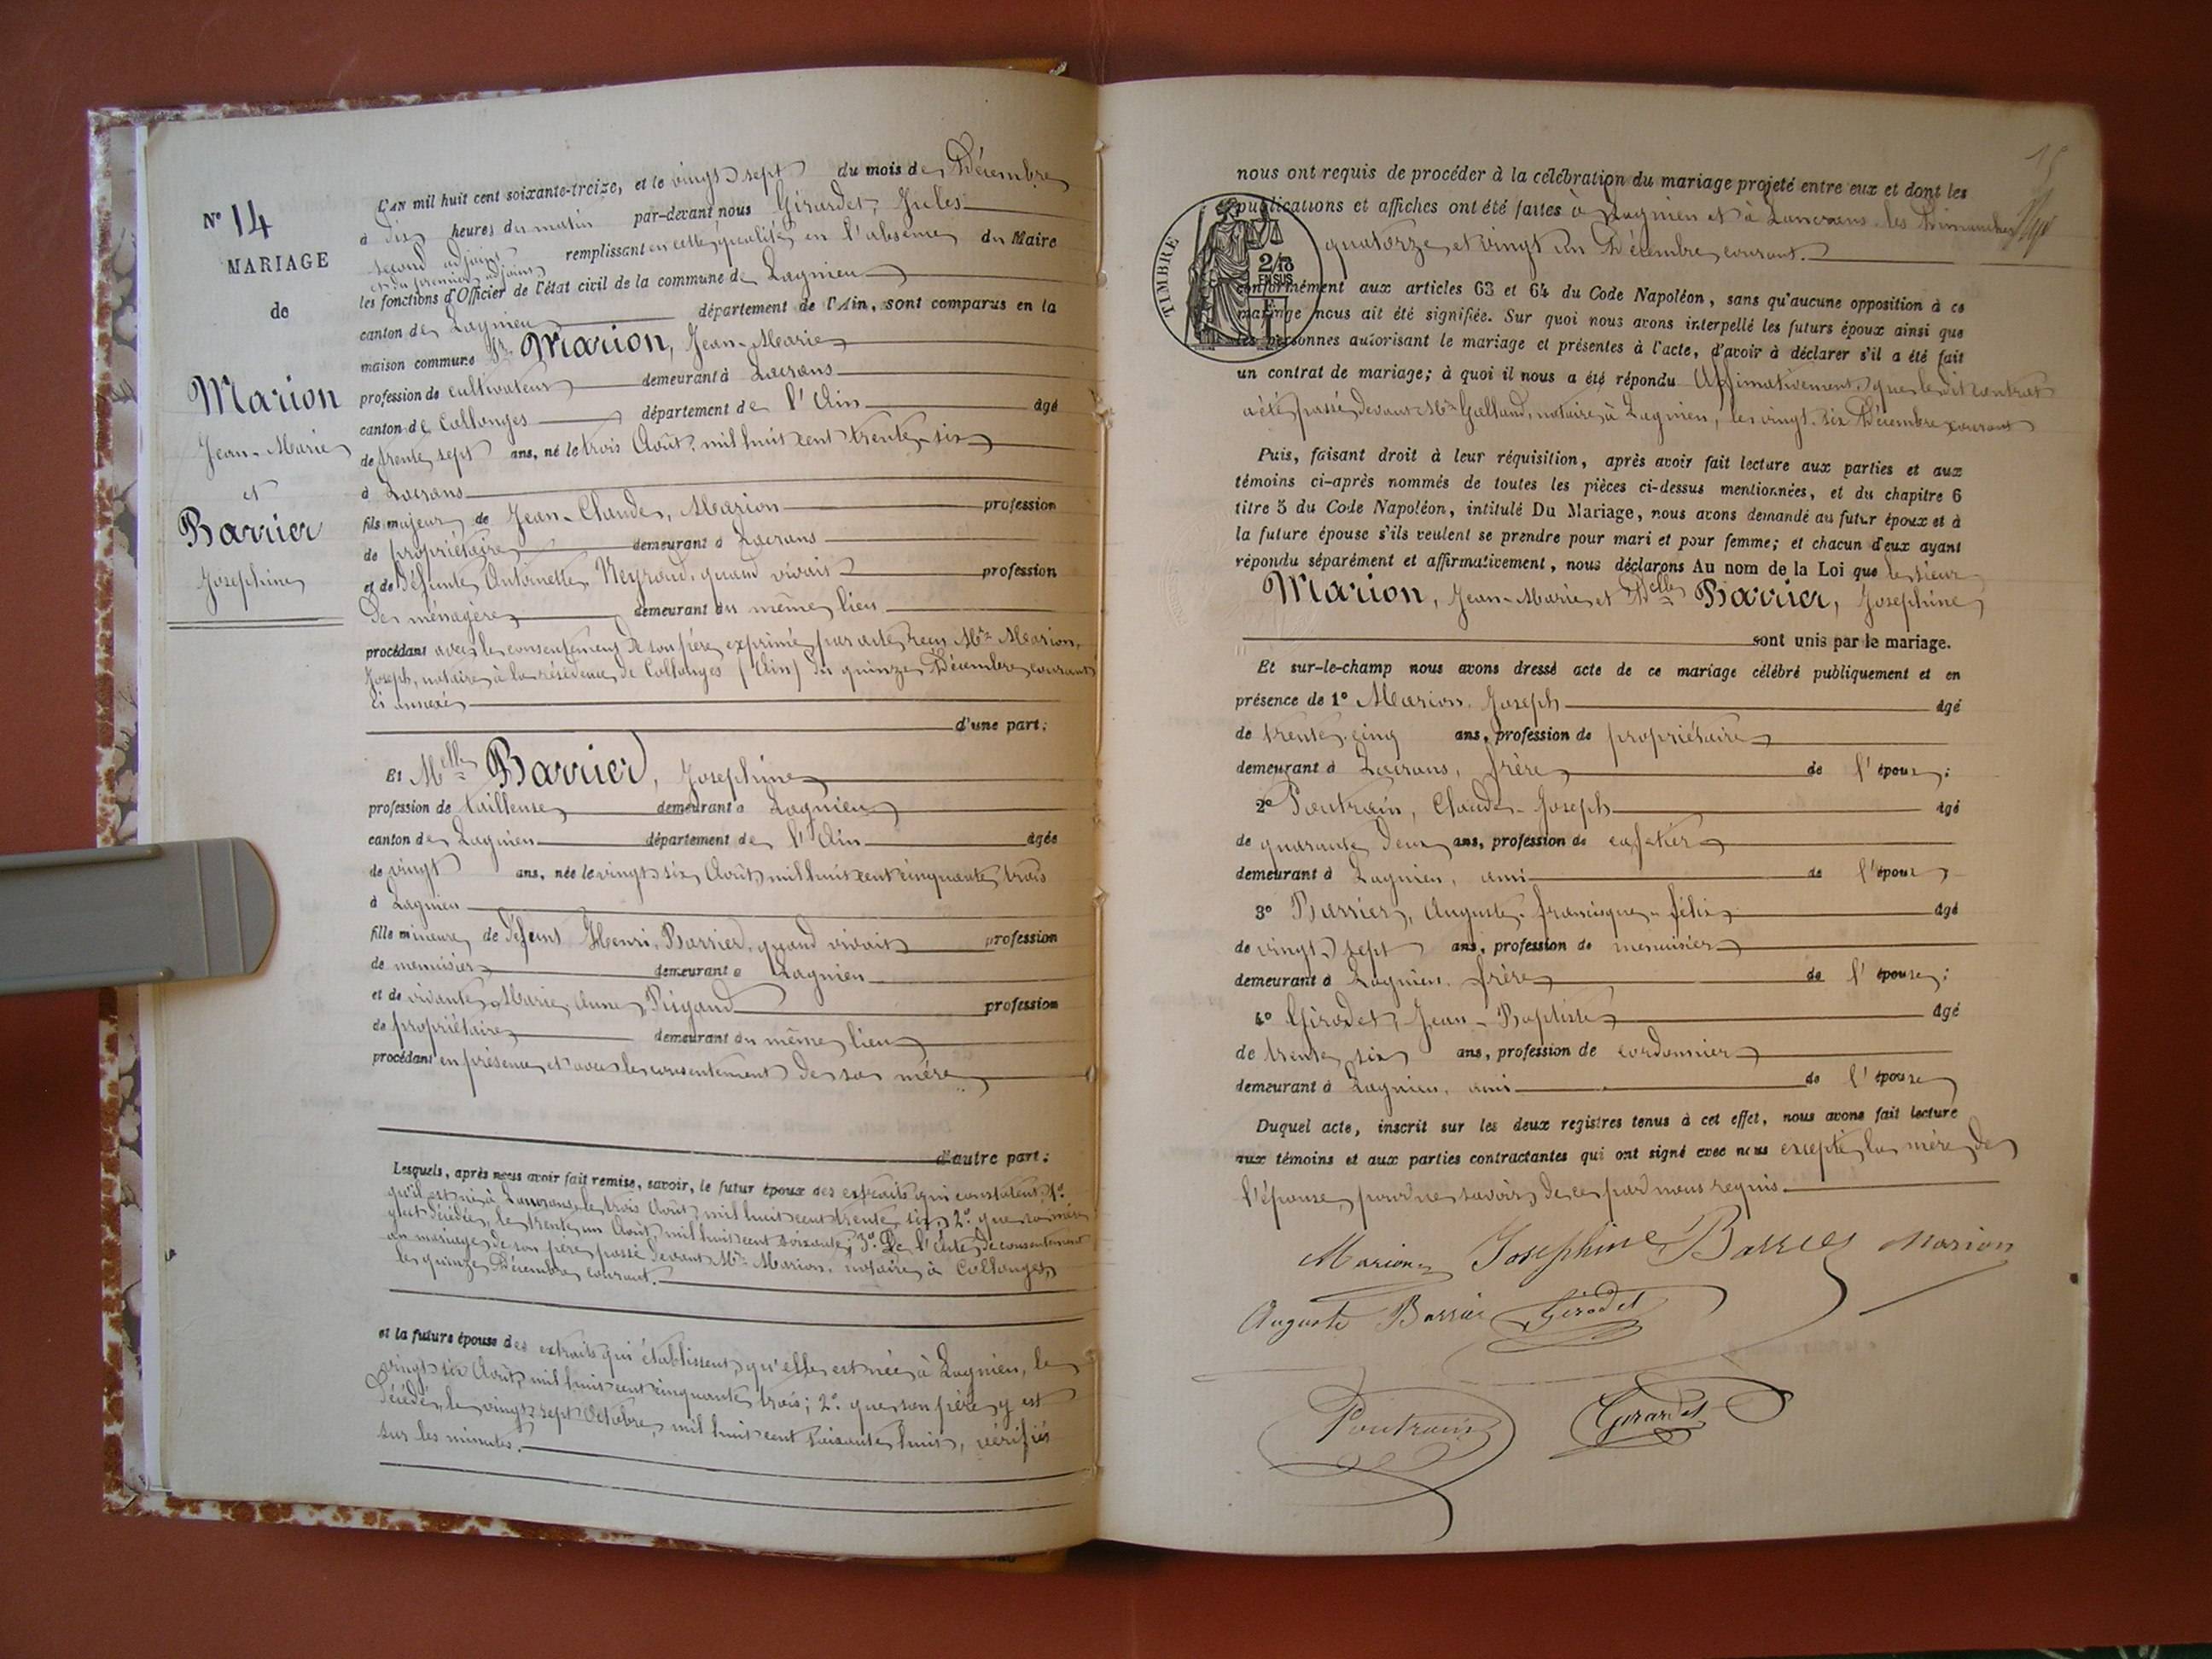 N° 14
MARIAGE
de
Marion
Jean-Marie
et
Barrier
Josephine
L'AN mil huit cent soixante-treize, et le vingt sept du mois de Décembre
à dix heures du matin par-devant nous Girardet, Jules
second adjoint remplissant en cette qualité, en l'absence du Maire
et du premier adjoint
les fonctions d'Officier de l'état civil de la commune de Lagnieu
canton de Lagnieu département de l'Ain, sont comparus en la
maison commune Sr Marion, Jean-Marie
profession de cultivateur demeurant à Lacrans
canton de Collonges département de l'Ain âgé
de trente sept ans, né le trois Août, mil huit cent trente-six
à Lacrans
fils majeur de Jean-Claude, Marion profession
de propriétaire demeurant à Lacrans
et de Défunte Antoinette Neyroud, quand vivait profession
de ménagère demeurant au même lieu
procédant avec le consentement de son père, exprimé par acte, reçu Mre Marion,
Joseph, notaire à la résidence de Collonges (Ain) du quinze Décembre courant
ci annexé
d'une part;
Et Melle Barrier, Josephine
profession de tailleuse demeurant à Lagnieu
canton de Lagnieu département de l'Ain âgée
de vingt ans, née le vingt six Août, mil huit cent cinquante trois
à Lagnieu
fille mineure de défunt Henri, Barrier, quand vivait profession
de menuisier demeurant à Lagnieu
et de vivante, Marie Anne, Rigaud profession
de propriétaire demeurant au même lieu
procédant en présence et avec le consentement de sa mère
d'autre part;
Lesquels, après nous avoir fait remise, savoir, le futur époux des extraits qui constatent, 1°
qu'il est né à Lancrans, le trois Août, mil huit cent trente six, 2° que sa mère
y est décédée, le trente un Août, mil huit cent soixante; 3° De l'acte de consentement
au mariage de son père passé devant Mre Marion, notaire à Collonges,
le quinze Décembre courant.
et la future épouse des extraits qui établissent, qu'elle est née, à Lagnieu, le
vingt six Août, mil huit cent cinquante, trois; 2° que son père y est
décédé, le vingt sept Octobre, mil huit cent soixante huit, vérifiés
sur les minutes.
nous ont requis de procéder à la célébration du mariage projeté entre eux et dont les
publications et affiches ont été faites à Lagnieu et à Lancrans, les Dimanches
quatorze, et vingt un Décembre courant.
TIMBRE
2/10
EN SUS
conformément aux articles 63 et 64 du Code Napoléon, sans qu'aucune opposition à ce
mariage nous ait été signifiée. Sur quoi nous avons interpellé les futurs époux ainsi que
les personnes autorisant le mariage et présentes à l'acte, d'avoir à déclarer s'il a été fait
un contrat de mariage; à quoi il nous a été répondu Affimativement, que le dit contrat
a été passé devant Mre Galland, notaire à Lagnieu, le vingt-six Décembre courant
Puis, faisant droit à leur réquisition, après avoir fait lecture aux parties et aux
témoins ci-après nommés de toutes les pièces ci-dessus mentionnées, et du chapitre 6
titre 5 du Code Napoléon, intitulé Du Mariage, nous avons demandé au futur époux et à
la future épouse s'ils veulent se prendre pour mari et pour femme; et chacun d'eux ayant
répondu séparément et affirmativement, nous déclarons Au nom de la Loi que le sieur
Marion, Jean-Marie et Delle Barrier, Josephine
sont unis par le mariage.
Et sur-le-champ nous avons dressé acte de ce mariage célébré publiquement et en
présence de 1° Marion, Joseph âgé
de trente-cinq ans, profession de propriétaire
demeurant à Lacrans, frère de l'époux;
2° Poutrain, Claude-Joseph âgé
de quarante deux ans, profession de cafetier
demeurant à Lagnieu, ami de l'époux
3° Barrier, Auguste-francisque-félix âgé
de vingt sept ans, profession de menuisier
demeurant à Lagnieu, frère de l'épouse;
4° Girodet, Jean-Baptiste âgé
de trente six ans, profession de cordonnier
demeurant à Lagnieu, ami de l'épouse
Duquel acte, inscrit sur les deux registres tenus à cet effet, nous avons fait lecture
aux témoins et aux parties contractantes qui ont signé avec nous excepté la mère de
l'épouse, pour ne savoir, de ce par nous requis.
Marion Josephine Barrier Marion
Auguste Barrier Girodet
Poutrain Girardet